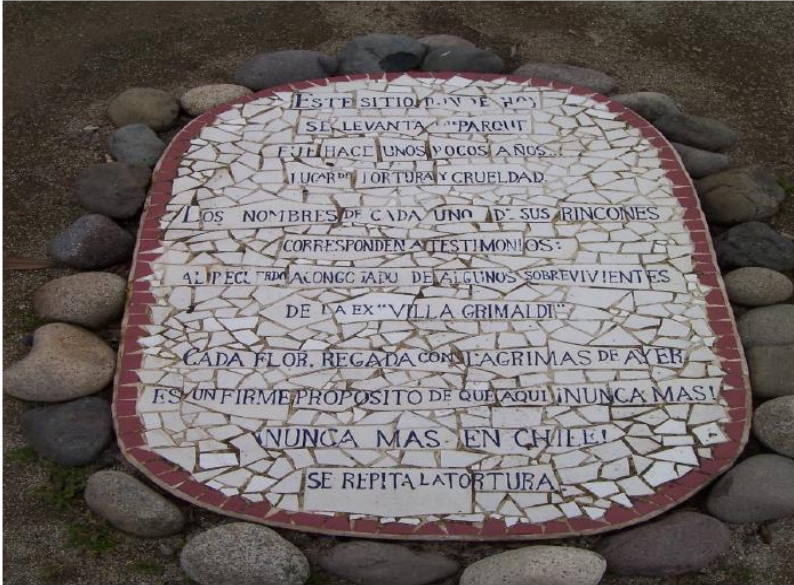 ESTE SITIO DONDE HOY
SE LEVANTA "PARQUE
FUE HACE UNOS POCOS AÑOS...
LUGAR DE TORTURA Y CRUELDAD.
LOS NOMBRES DE CADA UNO DE SUS RINCONES
CORRESPONDEN A TESTIMONIOS:
AL RECUERDO ACONGOJADO DE ALGUNOS SOBREVIVIENTES
DE LA EX "VILLA GRIMALDI"
CADA FLOR, REGADA CON LAGRIMAS DE AYER
ES UN FIRME PROPOSITO DE QUE AQUI ¡NUNCA MAS!
¡NUNCA MAS EN CHILE!
SE REPITA LA TORTURA.